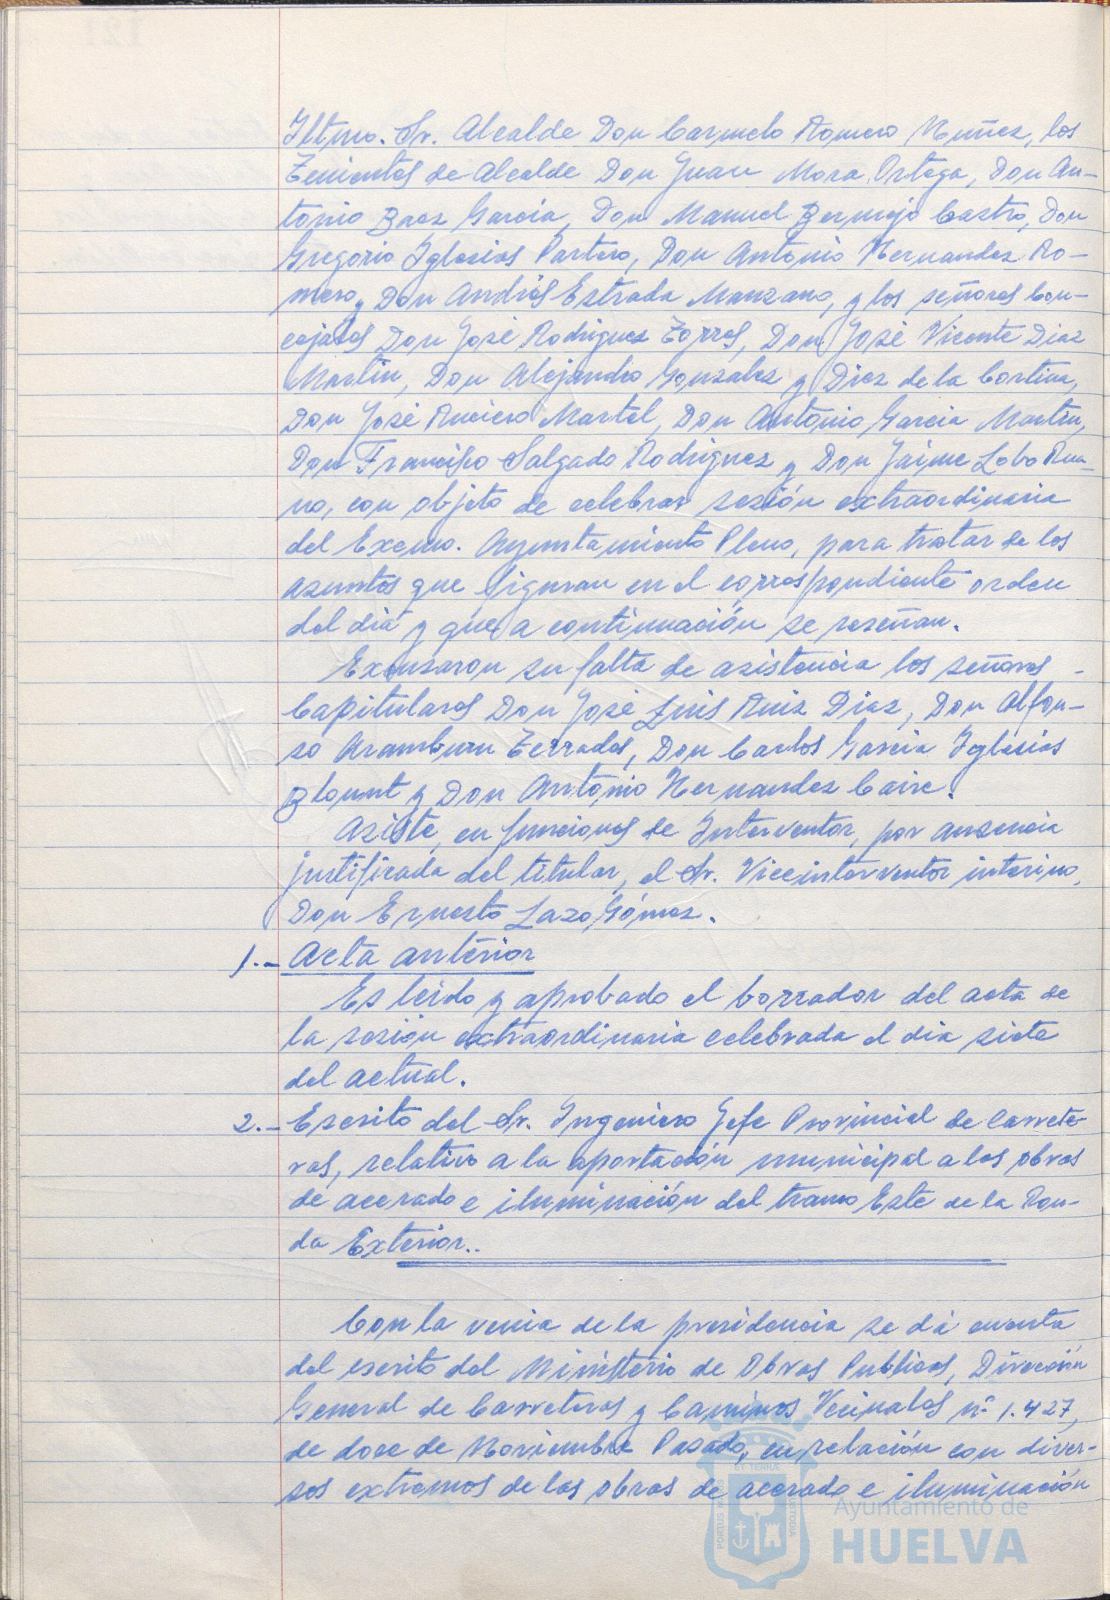 Iltmo. Sr. Alcalde Don Carmelo Romero Nuñez, los
Tenientes de Alcalde Don Juan Mora Ortega, Don An-
tonio Baez Garcia, Don Manuel Bermejo Castro, Don
Gregorio Iglesias Partero, Don Antonio Hernandez Ro-
mero, Don Andrés Estrada Manzano, y los señores Con-
cejales Don José Rodriguez Torres, Don José Vicente Diaz
Martin, Don Alejandro Gonzalez y Diez de la Cortina,
Don José Ruciero Martel, Don Antonio Garcia Martin,
Don Francisco Salgado Rodriguez y Don Jaime Lobo Rua-
no, con objeto de celebrar sesión extraordinaria
del Excmo. Ayuntamiento Pleno, para tratar de los
asuntos que figuran en el correspondiente orden
del dia y que a continuación se reseñan.
Excusaron su falta de asistencia los señores
Capitulares Don José Luis Ruiz Diaz, Don Alfon-
so Aramburu Terrades, Don Carlos Garcia Iglesias
Blount y Don Antonio Hernandez Caire.
Asiste, en funciones de Interventor, por ausencia
justificada del titular, el Sr. Viceinterventor interino,
Don Ernesto Lazo Gómez.
1.- Acta anterior
Es leido y aprobado el borrador del acta de
la sesión extraordinaria celebrada el dia siete
del actual.
2.- Escrito del Sr. Ingeniero Jefe Provincial de Carrete-
ras, relativo a la aportación municipal a las obras
de acerado e iluminación del tramo Este de la Ron-
da Exterior..
Con la venia de la presidencia se dá cuenta
del escrito del Ministerio de Obras Publicas, Dirección
General de Carreteras y Caminos Vecinales nº 1.427,
de doce de Noviembre Pasado, en relación con diver-
sos extremos de las obras de acerado e iluminación
Ayuntamiento de
HUELVA